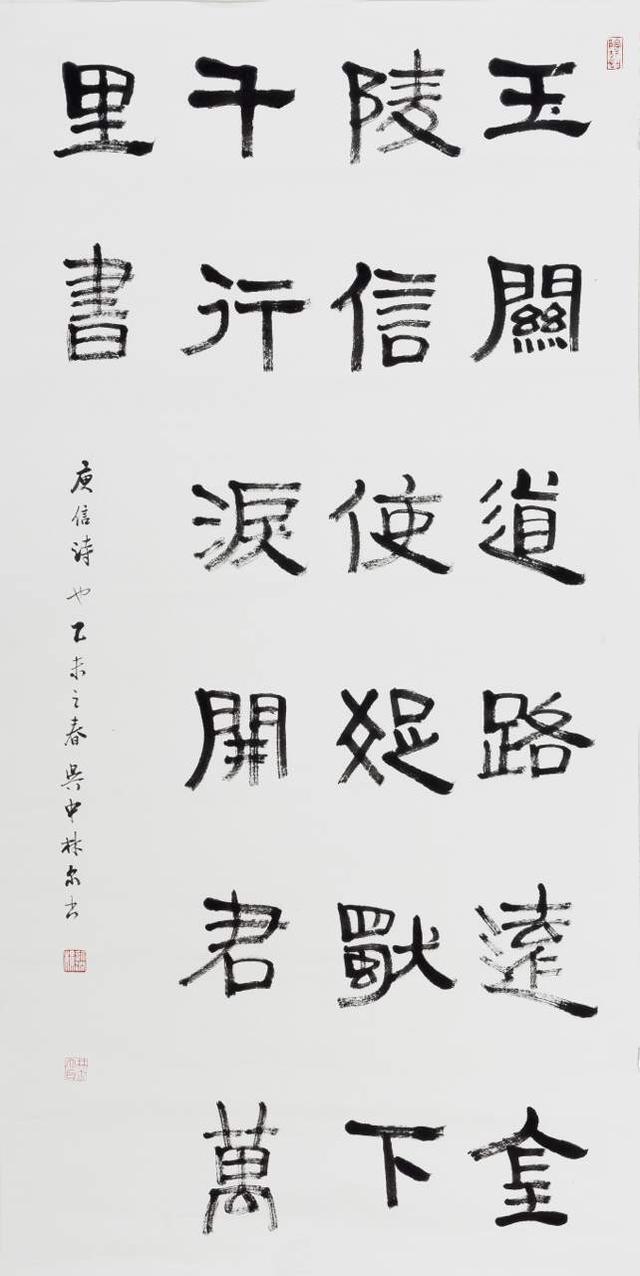 玉關道路遠金
陵信使疏獨下
千行淚開君萬
里書
庾信詩也乙未之春吳中林書